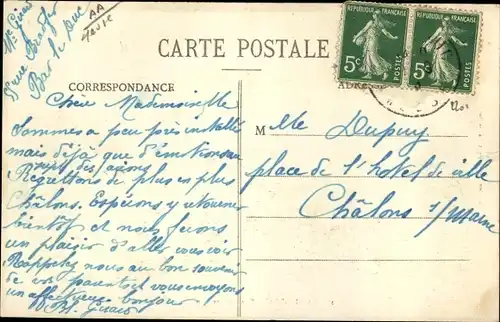 Mr Girard
rue
Bar le Duc
AA
REPUBLIQUE FRANÇAISE
5c POSTES
REPUBLIQUE FRANÇAISE
5c POSTES
CARTE POSTALE
CORRESPONDANCE
ADRESSE
Chère Mademoiselle
Sommes a peu près installé
mais déjà que d'émotions
Regrettons de plus en plus
Châlons. Espérons y retourner
bientôt et nous ferons
un plaisir d'aller vous voir
Rappelez nous au bon souvenir
de vos parents et vous envoyons
un affectueux bonjour
Girard
Mlle Dupuy
place de l'hôtel de ville
Châlons s/Marne